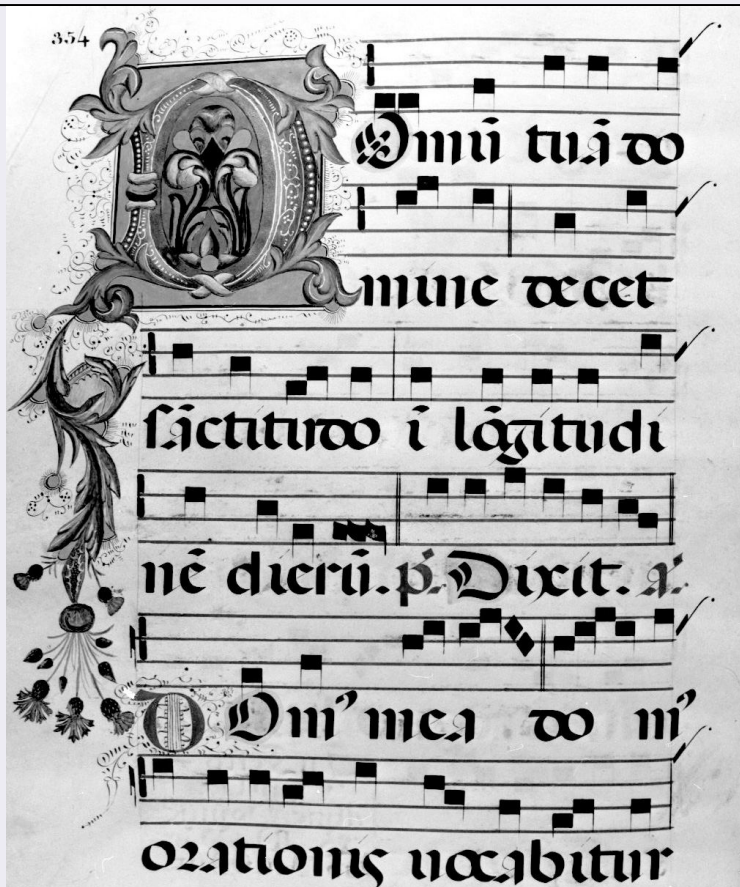 354
Domū tuā do
mine decet
sāctitudo ī lōgitudi
nē dierū. p̄. Dixit. a.
Dom᾽ mea do m᾽
orationis uocabitur